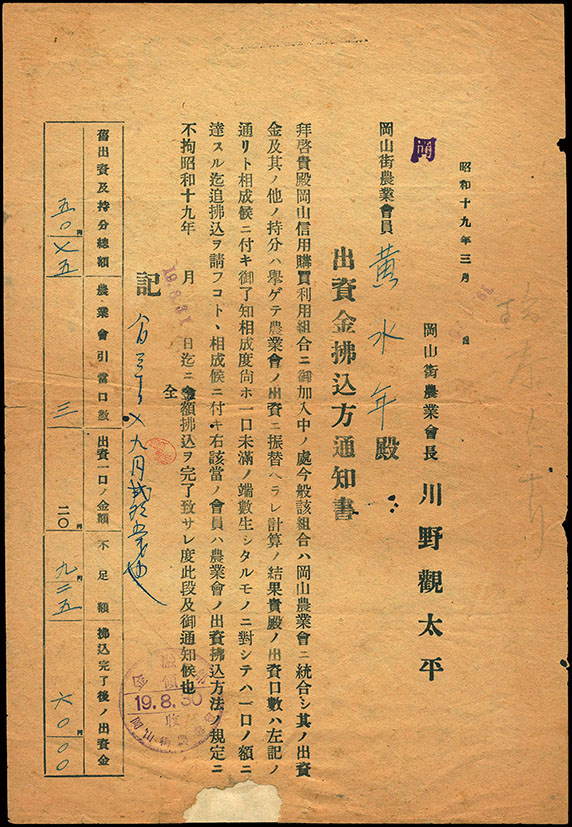 昭和十九年三月　日
岡山街農業會長　川野觀太平
岡
岡山街農業會員　黄水年殿
出資金拂込方通知書
拜啓貴殿岡山信用購買利用組合ニ御加入中ノ處今般該組合ハ岡山農業會ニ統合シ其ノ出資
金及其ノ他ノ持分ハ擧ゲテ農業會ノ出資ニ振替ヘラレ計算ノ結果貴殿ノ出資口數ハ左記ノ
通リト相成候ニ付キ御了知相成度尚ホ一口未滿ノ端數生シタルモノニ對シテハ一口ノ額ニ
達スル迄追拂込ヲ請フコト、相成候ニ付キ右該當ノ會員ハ農業會ノ出資拂込方法ノ規定ニ
不拘昭和十九年　月　日迄ニ金額拂込ヲ完了致サレ度此段及御通知候也
19.8.31
全
記
九月貳拾五
19.8.30
收
舊出資及持分總額　農業會引當口數　出資一口ノ金額　不足額　拂込完了後ノ出資金
五〇円七五　三　二〇円　九円二五　六〇円〇〇